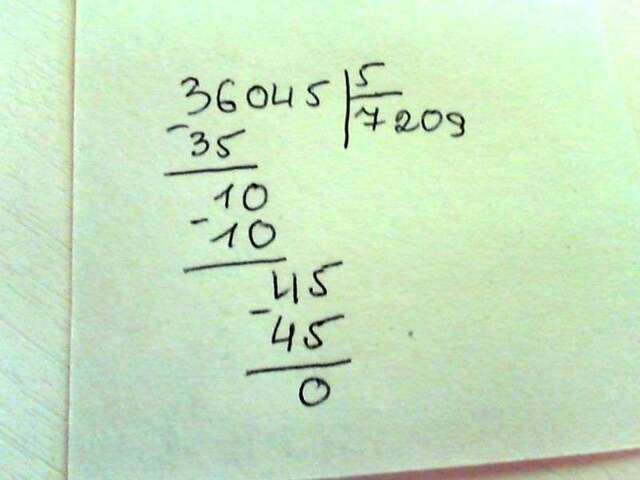 36045 5
7209
-35
10
-10
45
-45
0